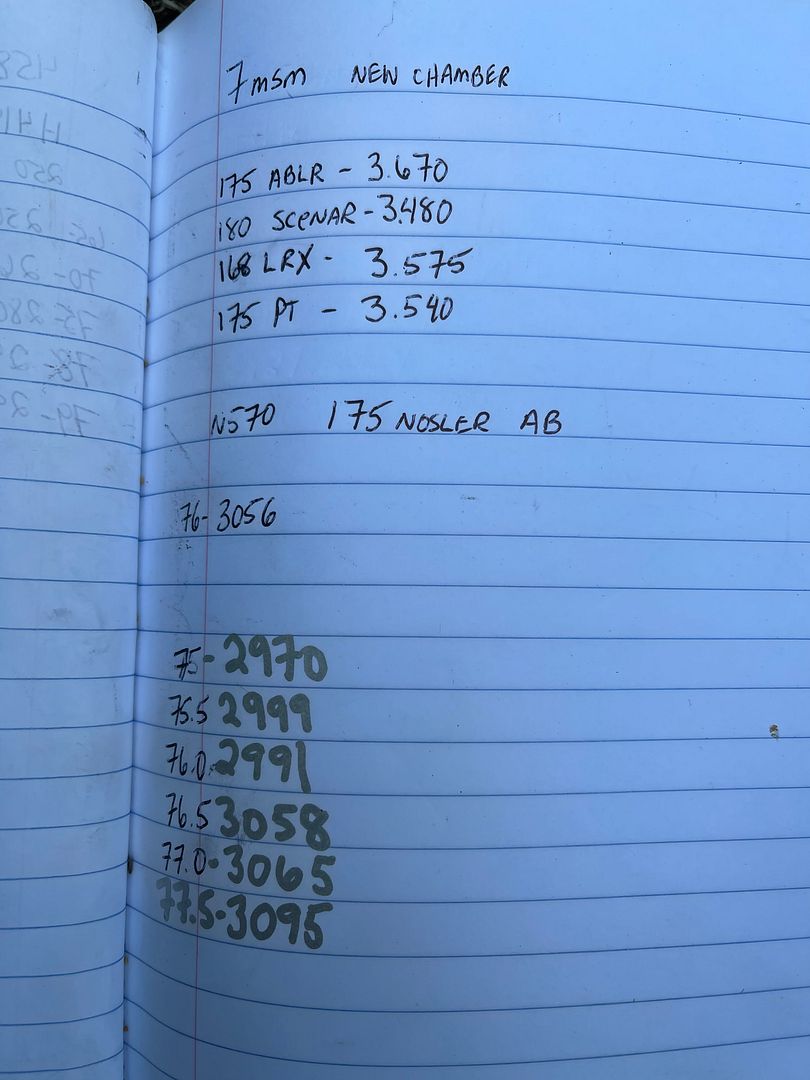 7msm NEW CHAMBER
175 ABLR - 3.670
180 SCENAR - 3.480
168 LRX - 3.575
175 PT - 3.540
N570 175 NOSLER AB
76- 3056
75- 2970
75.5 2999
76.0- 2991
76.5 3058
77.0- 3065
77.5- 3095